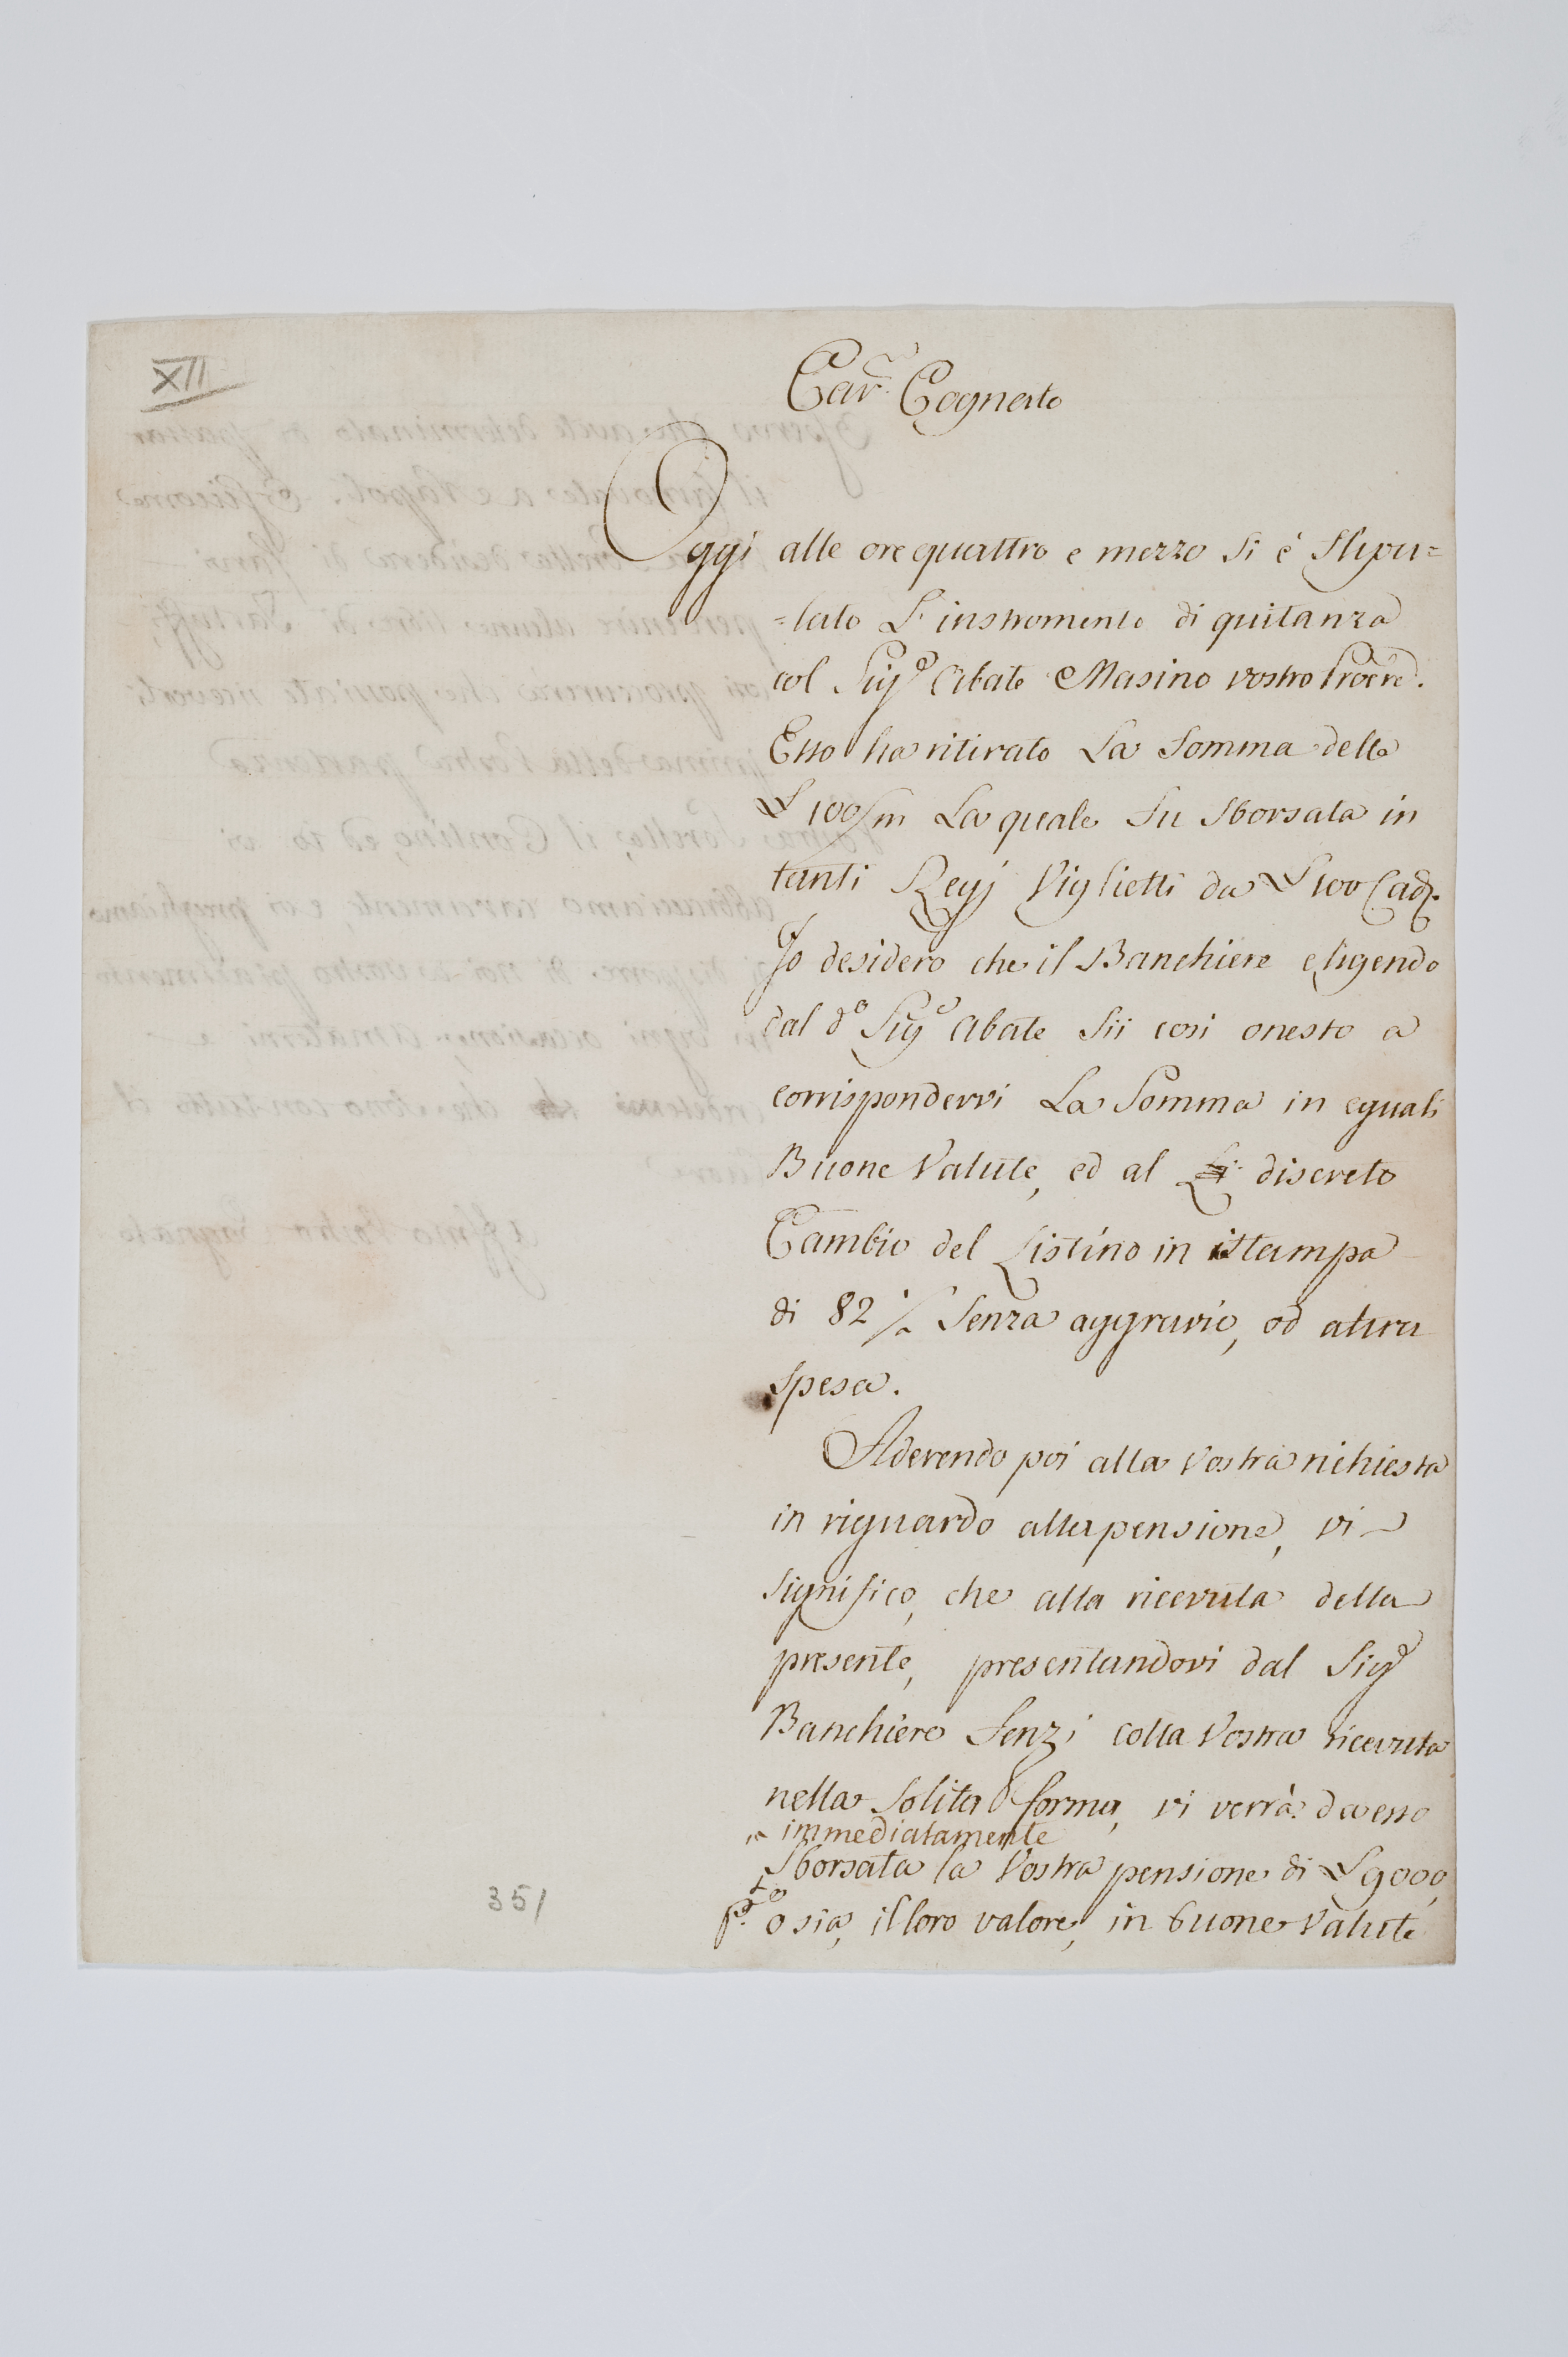 XII
Car.mo Cognato
Oggi alle ore quattro e mezzo si è stipu=
=lato L'instromento di quitanza
col Sig.e Abate Masino vostro Proc.re.
Esso ha ritirato La somma delle
L 100/m La quale fu sborsata in
tanti Regj Viglietti da L 100 Cad.
Jo desidero che il Banchiere eligendo
dal d.o Sig.e Abate sii così onesto a
corrispondervi La Somma in eguali
Buone Valute, ed al discreto
Cambio del Listino in istampa
di 82 senza aggravio, od altra
spesa.
Aderendo poi alla vostra richiesta
in riguardo alla pensione, vi
significo, che alla ricevuta della
presente, presentandovi dal Sig.e
Banchiere Fenzi colla vostra ricevuta
nella solita forma, vi verrà da esso
immediatamente
sborsata la vostra pensione di L 9000,
o sia, il loro valore, in buone Valute
351